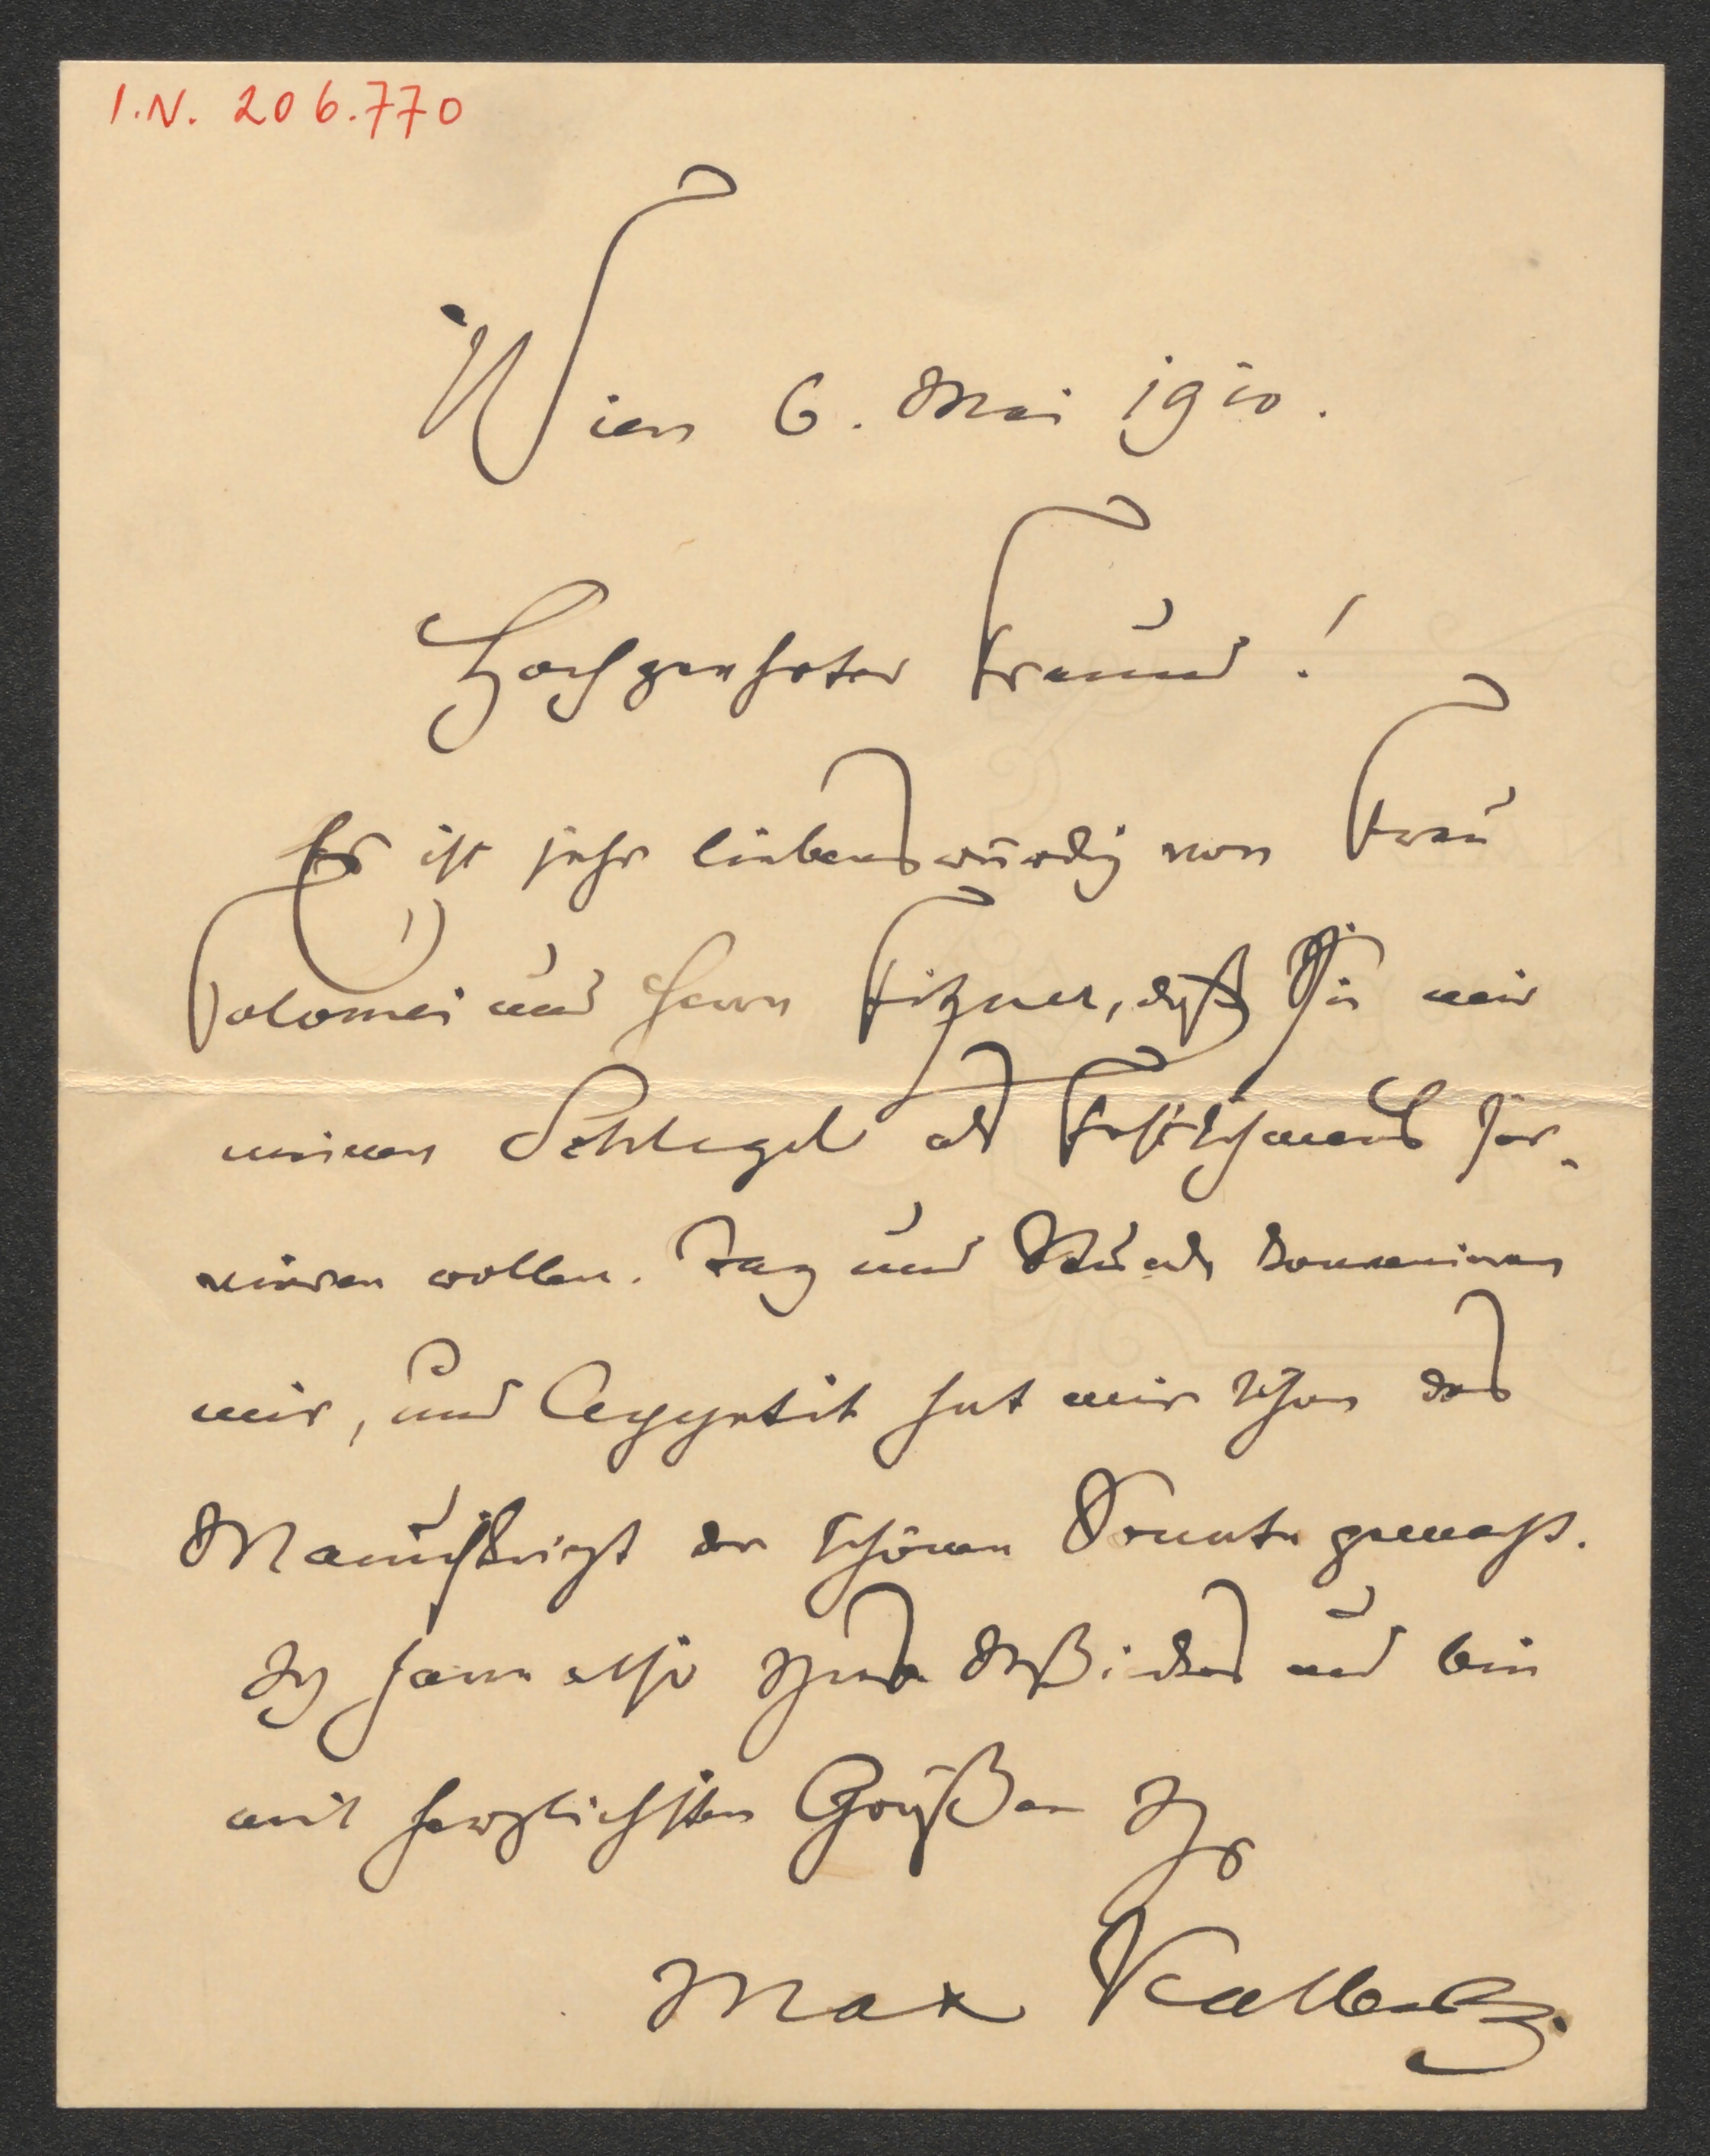 I.N. 206.770
Wien 6. Mai 1910.
Hochgeehrter Freund!
Es ist sehr liebenswürdig von Frau
Tolomei und Herrn Fitzner, daß Sie mir
meinen Schlegel als Festschmaus ser-
vieren wollen. Tag und Stunde konvenieren
mir, und Appetit hat mir schon das
Manuskript der schönen Sonate gemacht.
Ich harre also des und bin
mit herzlichsten Grüßen Ihr
Max Kalbeck.